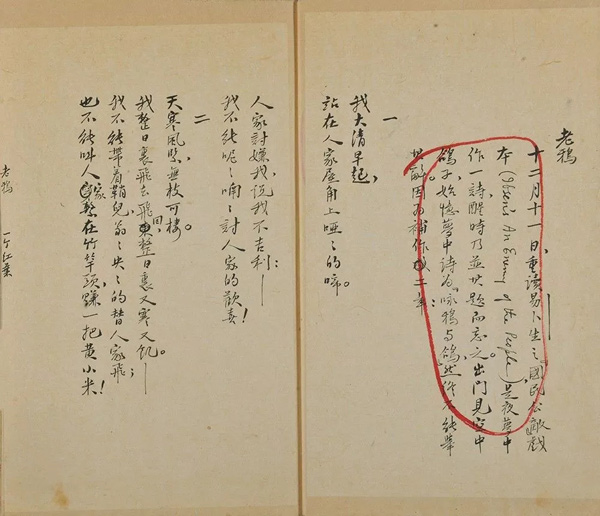 老鴉
十二月十一日,重讀易卜生之「國民公敵」戲
本(Ibsen's An Enemy of the People),是夜夢中
作一詩,醒時乃並其題而忘之。出門見空中
鴿子,始憶夢中詩為「咏鴉與鴿」,然終不能舉
其詞,因為補作成二章:
一
我大清早起,
站在人家屋角上啞〻的啼。
人家討嫌我,說我不吉利:—
我不能呢〻喃〻討人家的歡喜!
二
天寒風緊,無枝可棲。
我整日裏飛去飛回,整日裏又寒又飢。—
我不能帶着鞘兒翁〻央〻的替人家飛;
也不能叫人家繫在竹竿頭,賺一把黃小米!
老鴉